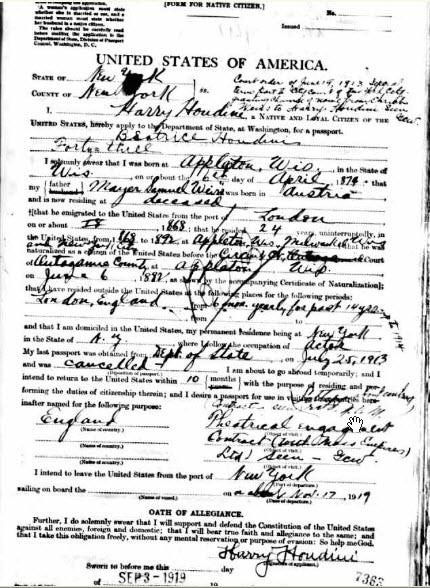 [FORM FOR NATIVE CITIZEN.]
A woman's passport must state
whether she is married or not, and a
married woman must state whether
her husband is a native citizen.
The rules should be carefully read
before mailing the application to the
Department of State, Division of Passport
Control, Washington, D. C.
No.
Issued
UNITED STATES OF AMERICA.
STATE OF New York
COUNTY OF New York ss.
Court order of June 1913
I, Harry Houdini, A NATIVE AND LOYAL CITIZEN OF THE
UNITED STATES, hereby apply to the Department of State, at Washington, for a passport.
Beatrice Houdini
Forty-three
I solemnly swear that I was born at Appleton, Wis., in the State of
Wis., on or about the 6 day of April, 1874, that
my father Mayer Samuel Weiss was born in Austria
and is now residing at deceased
that he emigrated to the United States from the port of London
on or about 18, 1868; that he resided 24 years, uninterruptedly, in
the United States, from 1868 to 1892, at Appleton, Wis, Milwaukee, Wis
and New York that he was
naturalized as a citizen of the United States before the Circuit Court
of Outagamie County, at Appleton, Wis.
on June 6, 1882, as shown by the accompanying Certificate of Naturalization];
that I have resided outside the United States at the following places for the following periods:
London, England from 6 mos. yearly, for past 14 yrs.
to 1914
and that I am domiciled in the United States, my permanent residence being at New York
in the State of N. Y, where I follow the occupation of Actor
My last passport was obtained from Dept. of State on July 25, 1913
and was cancelled I am about to go abroad temporarily; and I
(Disposition of passport.)
intend to return to the United States within 10 months with the purpose of residing and per-
forming the duties of citizenship therein; and I desire a passport for use in visiting the countries here-
inafter named for the following purpose:
England Theatrical engagement
(Name of country.) (Object of visit.)
Contract (Moss Empires)
(Name of country.) (Object of visit.)
Ltd) Seen
(Name of country.) (Object of visit.)
I intend to leave the United States from the port of New York
(Port of departure.)
sailing on board the on about Nov. 17, 1919
(Name of vessel.) (Date of departure.)
OATH OF ALLEGIANCE.
Further, I do solemnly swear that I will support and defend the Constitution of the United States
against all enemies, foreign and domestic; that I will bear true faith and allegiance to the same; and
that I take this obligation freely, without any mental reservation or purpose of evasion: So help me God.
Harry Houdini
Sworn to before me this day
of SEP 3 - 1919